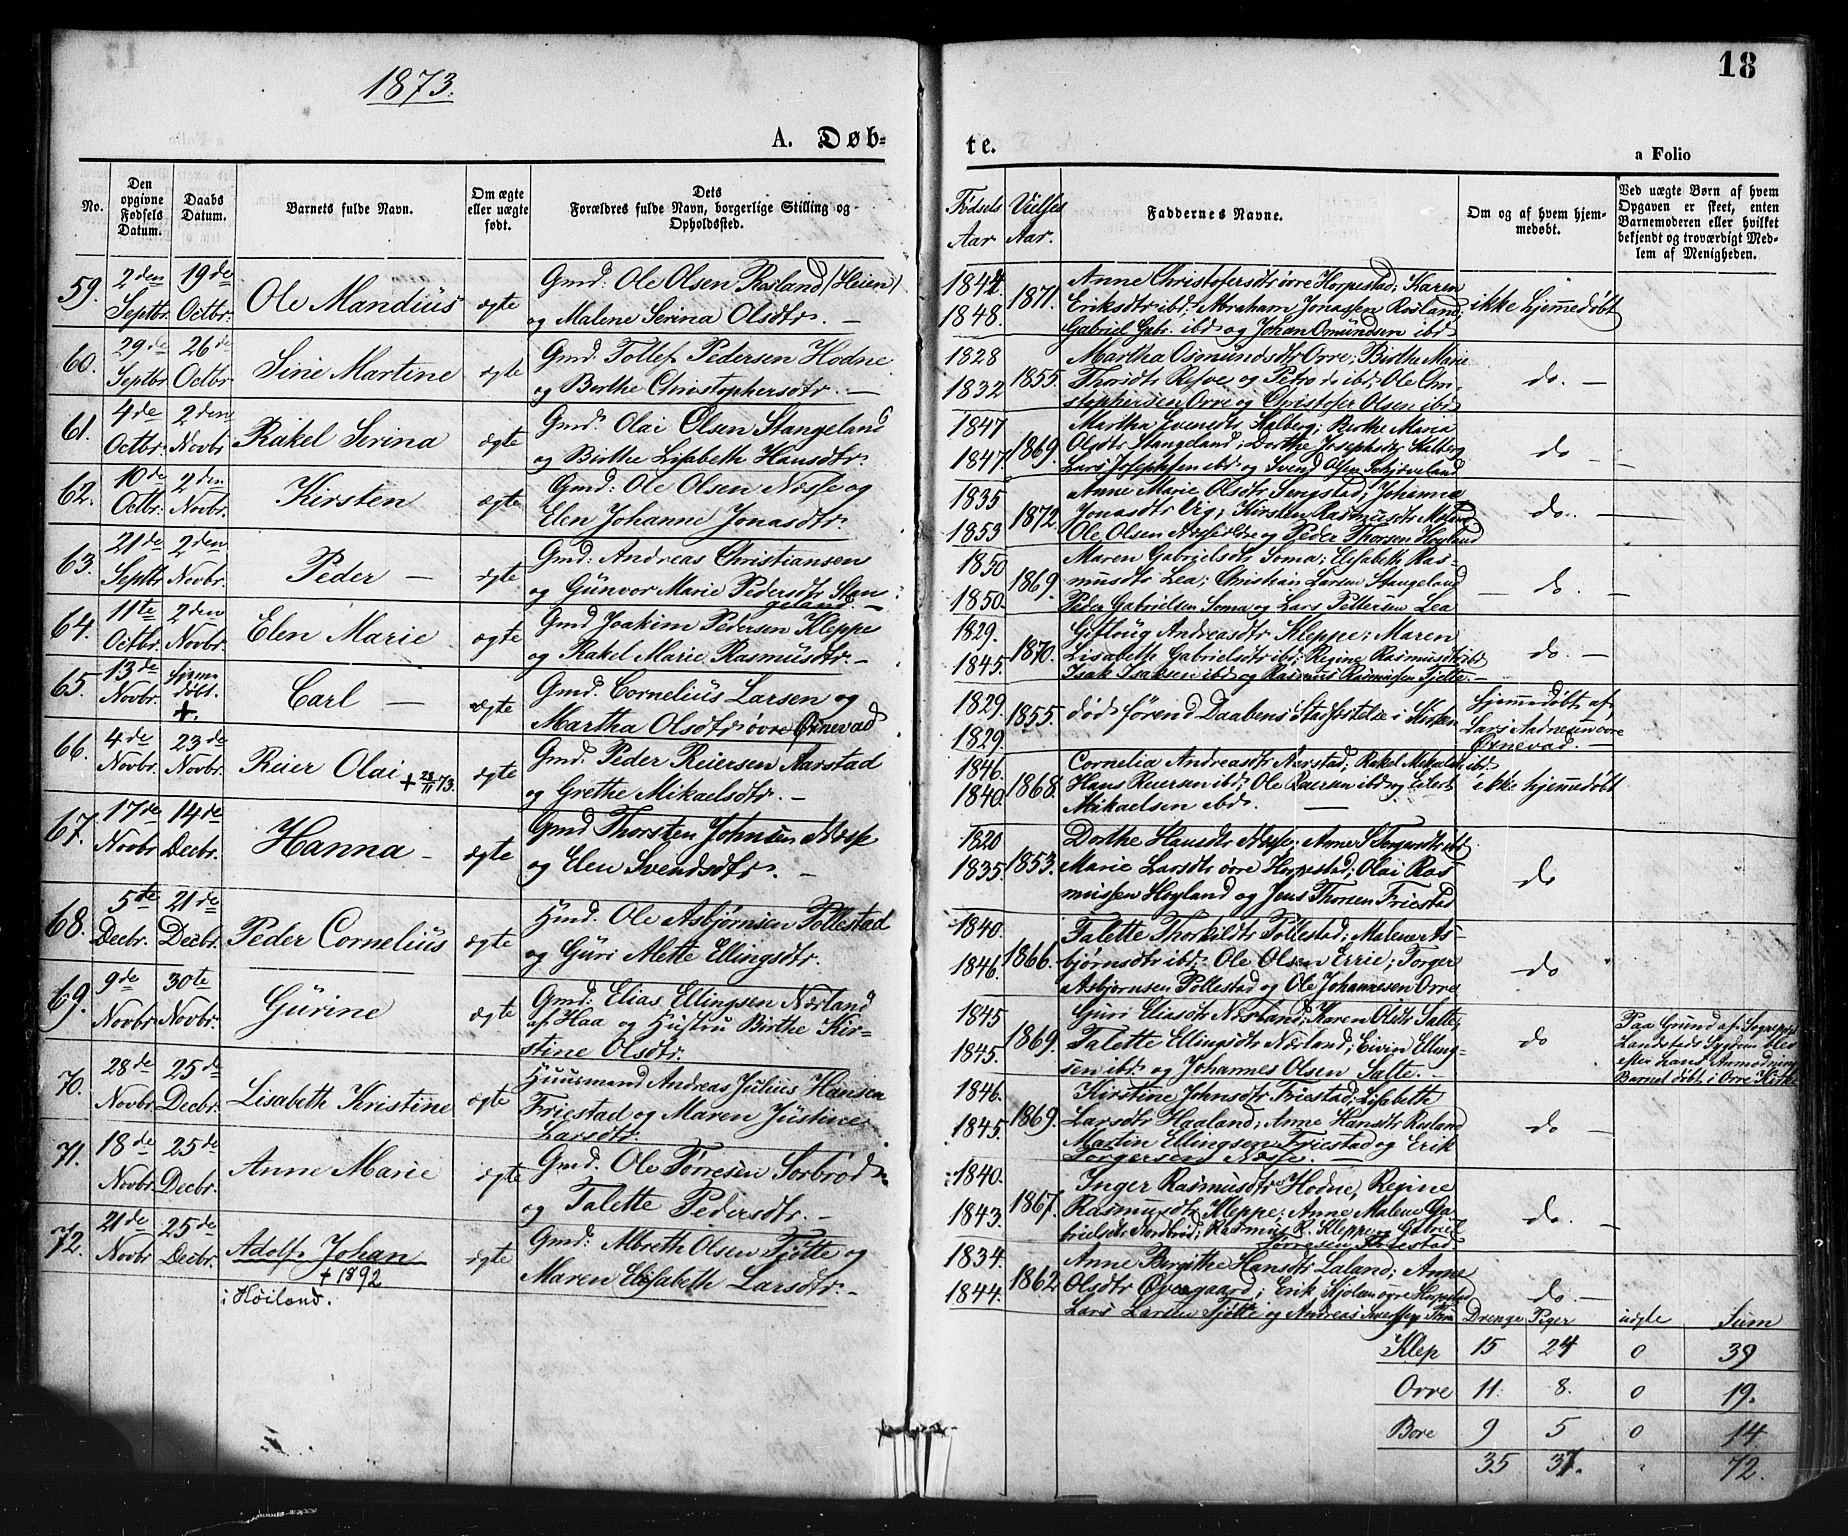 18
1873.
A. Døb-
te.
a Folio
No.
Den opgivne Fødsels Datum.
Daabs Datum.
Barnets fulde Navn.
Om ægte eller uægte født.
Dets Forældres fulde Navn, borgerlige Stilling og Opholdssted.
Fødsels Aar
Vielses Aar.
Faddernes Navne.
Om og af hvem hjemmedøbt.
Ved uægte Børn af hvem Opgaven er skeet, enten Barnemoderen eller hvilket bekjendt og troværdigt Medlem af Menigheden.
59. 2den Septbr. 19de Octbr. Ole Mandius ægte Gmd: Ole Olsen Rosland (Heien)
og Malene Serina Olsdtr. —
1844 1848. 1871. Anne Christofersdtr øvre Horpestad; Karen
Eriksdtr ibd; Abraham Jonassen Rosland;
Gabriel Gabr. ibd og Johan Osmundsen ibd
ikke hjemmedøbt
60. 29de Septbr. 26de Octbr. Sine Martine ægte Gmd. Tollef Pedersen Hodne
og Berthe Christophersdtr. —
1828 1832 1855. Martha Osmundsdtr Orre; Birthe Marie
Thorsdtr Refve og Petro do ibd; Ole Chri-
stophersen Orre og Christofer Olsen ibd
do. —
61. 4de Octbr. 2den Novbr Rakel Serina ægte Gmd. Olai Olsen Stangeland
og Birthe Lisabeth Hansdtr.
1847 1847. 1869. Martha Svensdtr Kalberg; Birthe Maria
Olsdtr Stangeland; Dorthe Josephsdtr Kalberg
Lars Josephsen ibd og Svend Olsen
do —
62. 10de Octbr. 2den Novbr. Kirsten ægte Gmd: Ole Olsen Næsse og
Elen Johanne Jonasdtr.
1835 1853 1872 Anne Marie Olsdtr; Johanna
Jonasdtr Vig; Kirsten Rasmusdtr
Ole Olsen og Peder Thorsen Høyland
do. —
63. 21de Septbr 2den Novbr. Peder — ægte Gmd: Andreas Christiansen
og Gunvor Marie Pedersdtr Stan-
geland. —
1850 1850. 1869. Maren Gabrielsdtr Soma; Elisabeth Ras-
musdtr Lea; Christian Larsen Stangeland
Peder Gabrielsen Soma og Lars Pettersen Lea
— do —
64. 11te Octbr. 2den Novbr. Elen Marie ægte Gmd Joakim Pedersen Kleppe
og Rakel Marie Rasmusdtr. —
1829. 1845. 1870. Andreasdtr Kleppe; Maren
Lisabeth Gabrielsdtr ibd; Regine Rasmusdtr ibd
Isak Isaksen ibd og Rasmus Rasmussen Tjelte. —
do. —
65. 13de Novbr. Hjemmedøbt. +. Carl — ægte Gmd. Cornelius Larsen og
Martha Olsdtr øvre Ørnevad
1829. 1829. 1855. død førend Daabens Stadfæstelse i Kirken
Hjemmedøbt af
Lars Aadnesen øvre
Ørnevad. —
66. 4de Novbr. 23de Novbr. Reier Olai + 28/11 73. ægte Gmd. Peder Reiersen Aarstad
og Grethe Mikaelsdtr. —
1846. 1840. 1868. Cornelia Andreasdtr Aarstad; Rakel Mikalsdtr ibd.
Hans Reiersen ibd; Ole Reiersen ibd og Eilert
Mikaelsen ibd. —
ikke hjemmedøbt
67. 17de Novbr 14de Decbr. Hanna — ægte Gmd Thorsten Johnsen Næsse
og Elen Svendsdtr. —
1820 1835. 1853. Dorthe Hansdtr Næsse; Anne S Torgersdtr ibd
Marie Larsdtr øvre Horpestad; Olai Ras-
mussen Høyland og Jens Thorsen Friestad
do
68. 5te Decbr. 21de Decbr. Peder Cornelius ægte Hmd. Ole Asbjørnsen Pollestad
og Guri Alette Ellingsdtr.
1840. 1846. 1866. Talette Thorkildtr Pollestad; Malene As-
bjørnsdtr ibd. Ole Olsen Errie; Torger
Asbjørnsen Pollestad og Ole Johannesen Orre
do
69. 9de Novbr 30te Novbr. Gurine ægte Gmd: Elias Ellingsen Nærland
af Haa og Hustru Birthe Kir-
stine Olsdtr.
1845 1845. 1869. Guri Eliasdtr Nærland; Karen Olsdtr Salte;
Talette Ellingsdtr Nærland; Eivin Elling-
sen ibd og Johannes Olsen Salte. —
do
Paa Grund af
Landsteds Sygdom blev
efter Anmodning
Barnet døbt i Orre Kirke
70. 28de Novbr. 25de Decbr. Lisabeth Kristine ægte Huusmand Andreas Julius Hansen
Friestad og Maren Justine
Larsdtr.
1846. 1845. 1869. Kirstine Johnsdtr Friestad; Lisabeth
Larsdtr Haaland; Anne Hansdtr Rosland
Martin Ellingsen Friestad og Erik
Torgersen Næsse. —
do —
71. 18de Novbr. 25de Decbr. Anne Marie ægte Gmd. Ole Tørresen Sorbrød
og Talette Pedersdtr. —
1840. 1843. 1867. Inger Rasmusdtr Hodne, Regine
Rasmusdtr Kleppe; Anne Malene Ga-
brielsdtr Nordbrød; Rasmus R. Kleppe og Gabriel
Tørresen
do. —
72. 21de Novbr 25de Decbr. Adolf Johan ægte Gmd: Albreth Olsen Tjøtte og
+ 1892
i Høiland.
Maren Elisabeth Larsdtr. —
1834. 1844. 1862 Anne Birgithe Hansdtr Laland; Anne
Olsdtr Øvregaard; Erik øvre Horpestad
Lars Larsen Tjøtte og Andreas
do. —
Drenge Piger uægte Sum
Klep 15 24 0 39
Orre 11. 8. 0 19.
Bore 9 5 0 14
35 37. " 72.